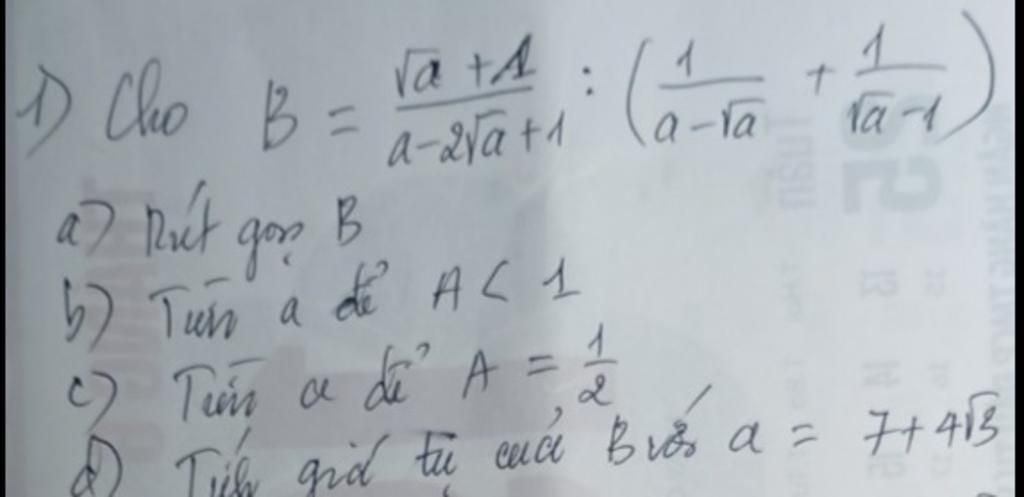 1) Cho B = \frac{\sqrt{a}+1}{a-2\sqrt{a}+1} : \left(\frac{1}{a-\sqrt{a}} + \frac{1}{\sqrt{a}-1}\right)
a) Rút gọn B
b) Tìm a để A < 1
c) Tìm a để A = \frac{1}{2}
d) Tính giá trị của B với a = 7+4\sqrt{3}